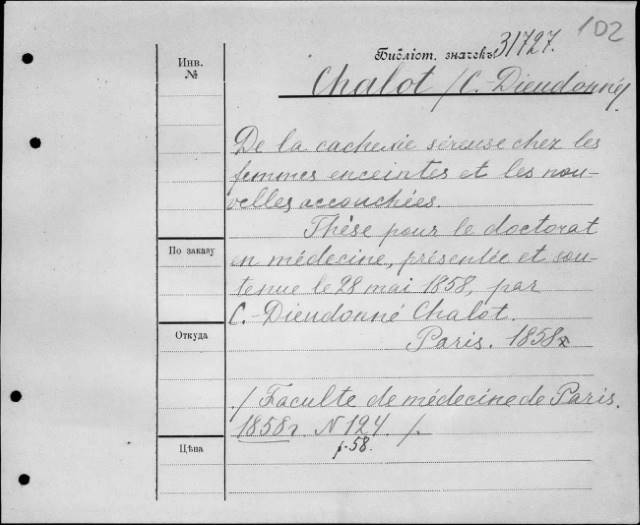 102
Библіот. значекъ 31727.
Инв.
№
Chalot /C. Dieudonné/
De la cachexie séreuse chez les
femmes enceintes et les nou-
velles accouchées.
Thèse pour le doctorat
По заказу
en médecine, présentée et sou-
tenue le 28 mai 1858, par
C.-Dieudonné Chalot.
Откуда
Paris. 1858
/Faculte de médecine de Paris.
1858 N 124 /.
Цѣна
f-58.